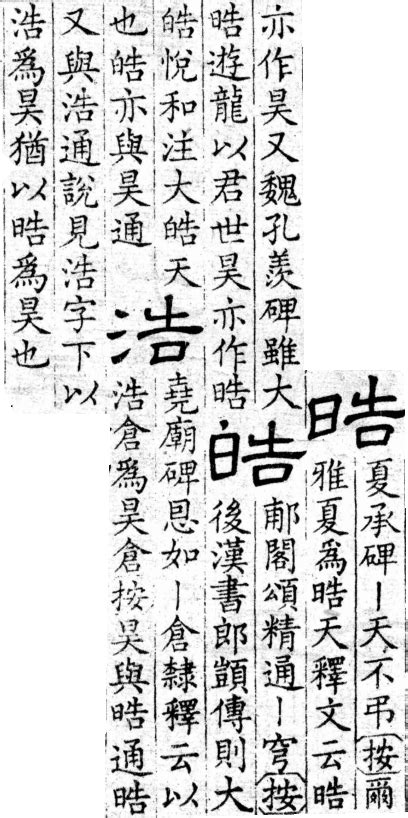 晧
夏承碑丨天不弔按爾
雅夏爲晧天釋文云晧
亦作昊又魏孔羨碑雖大
晧遊龍以君世昊亦作晧
皓
郙閣頌精通丨穹按
後漢書郎顗傳則大
皓悅和注大皓天
也皓亦與昊通
浩
堯廟碑恩如丨倉隸釋云以
浩倉爲昊倉按昊與晧通晧
又與浩通說見浩字下以
浩爲昊猶以晧爲昊也